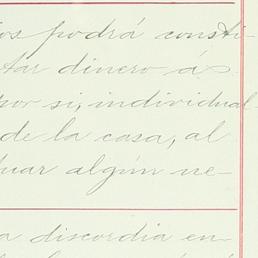 ios podrá consti-
tar dinero á
por si, individual-
de la casa, al
tuar algún ne-
a discordia en-